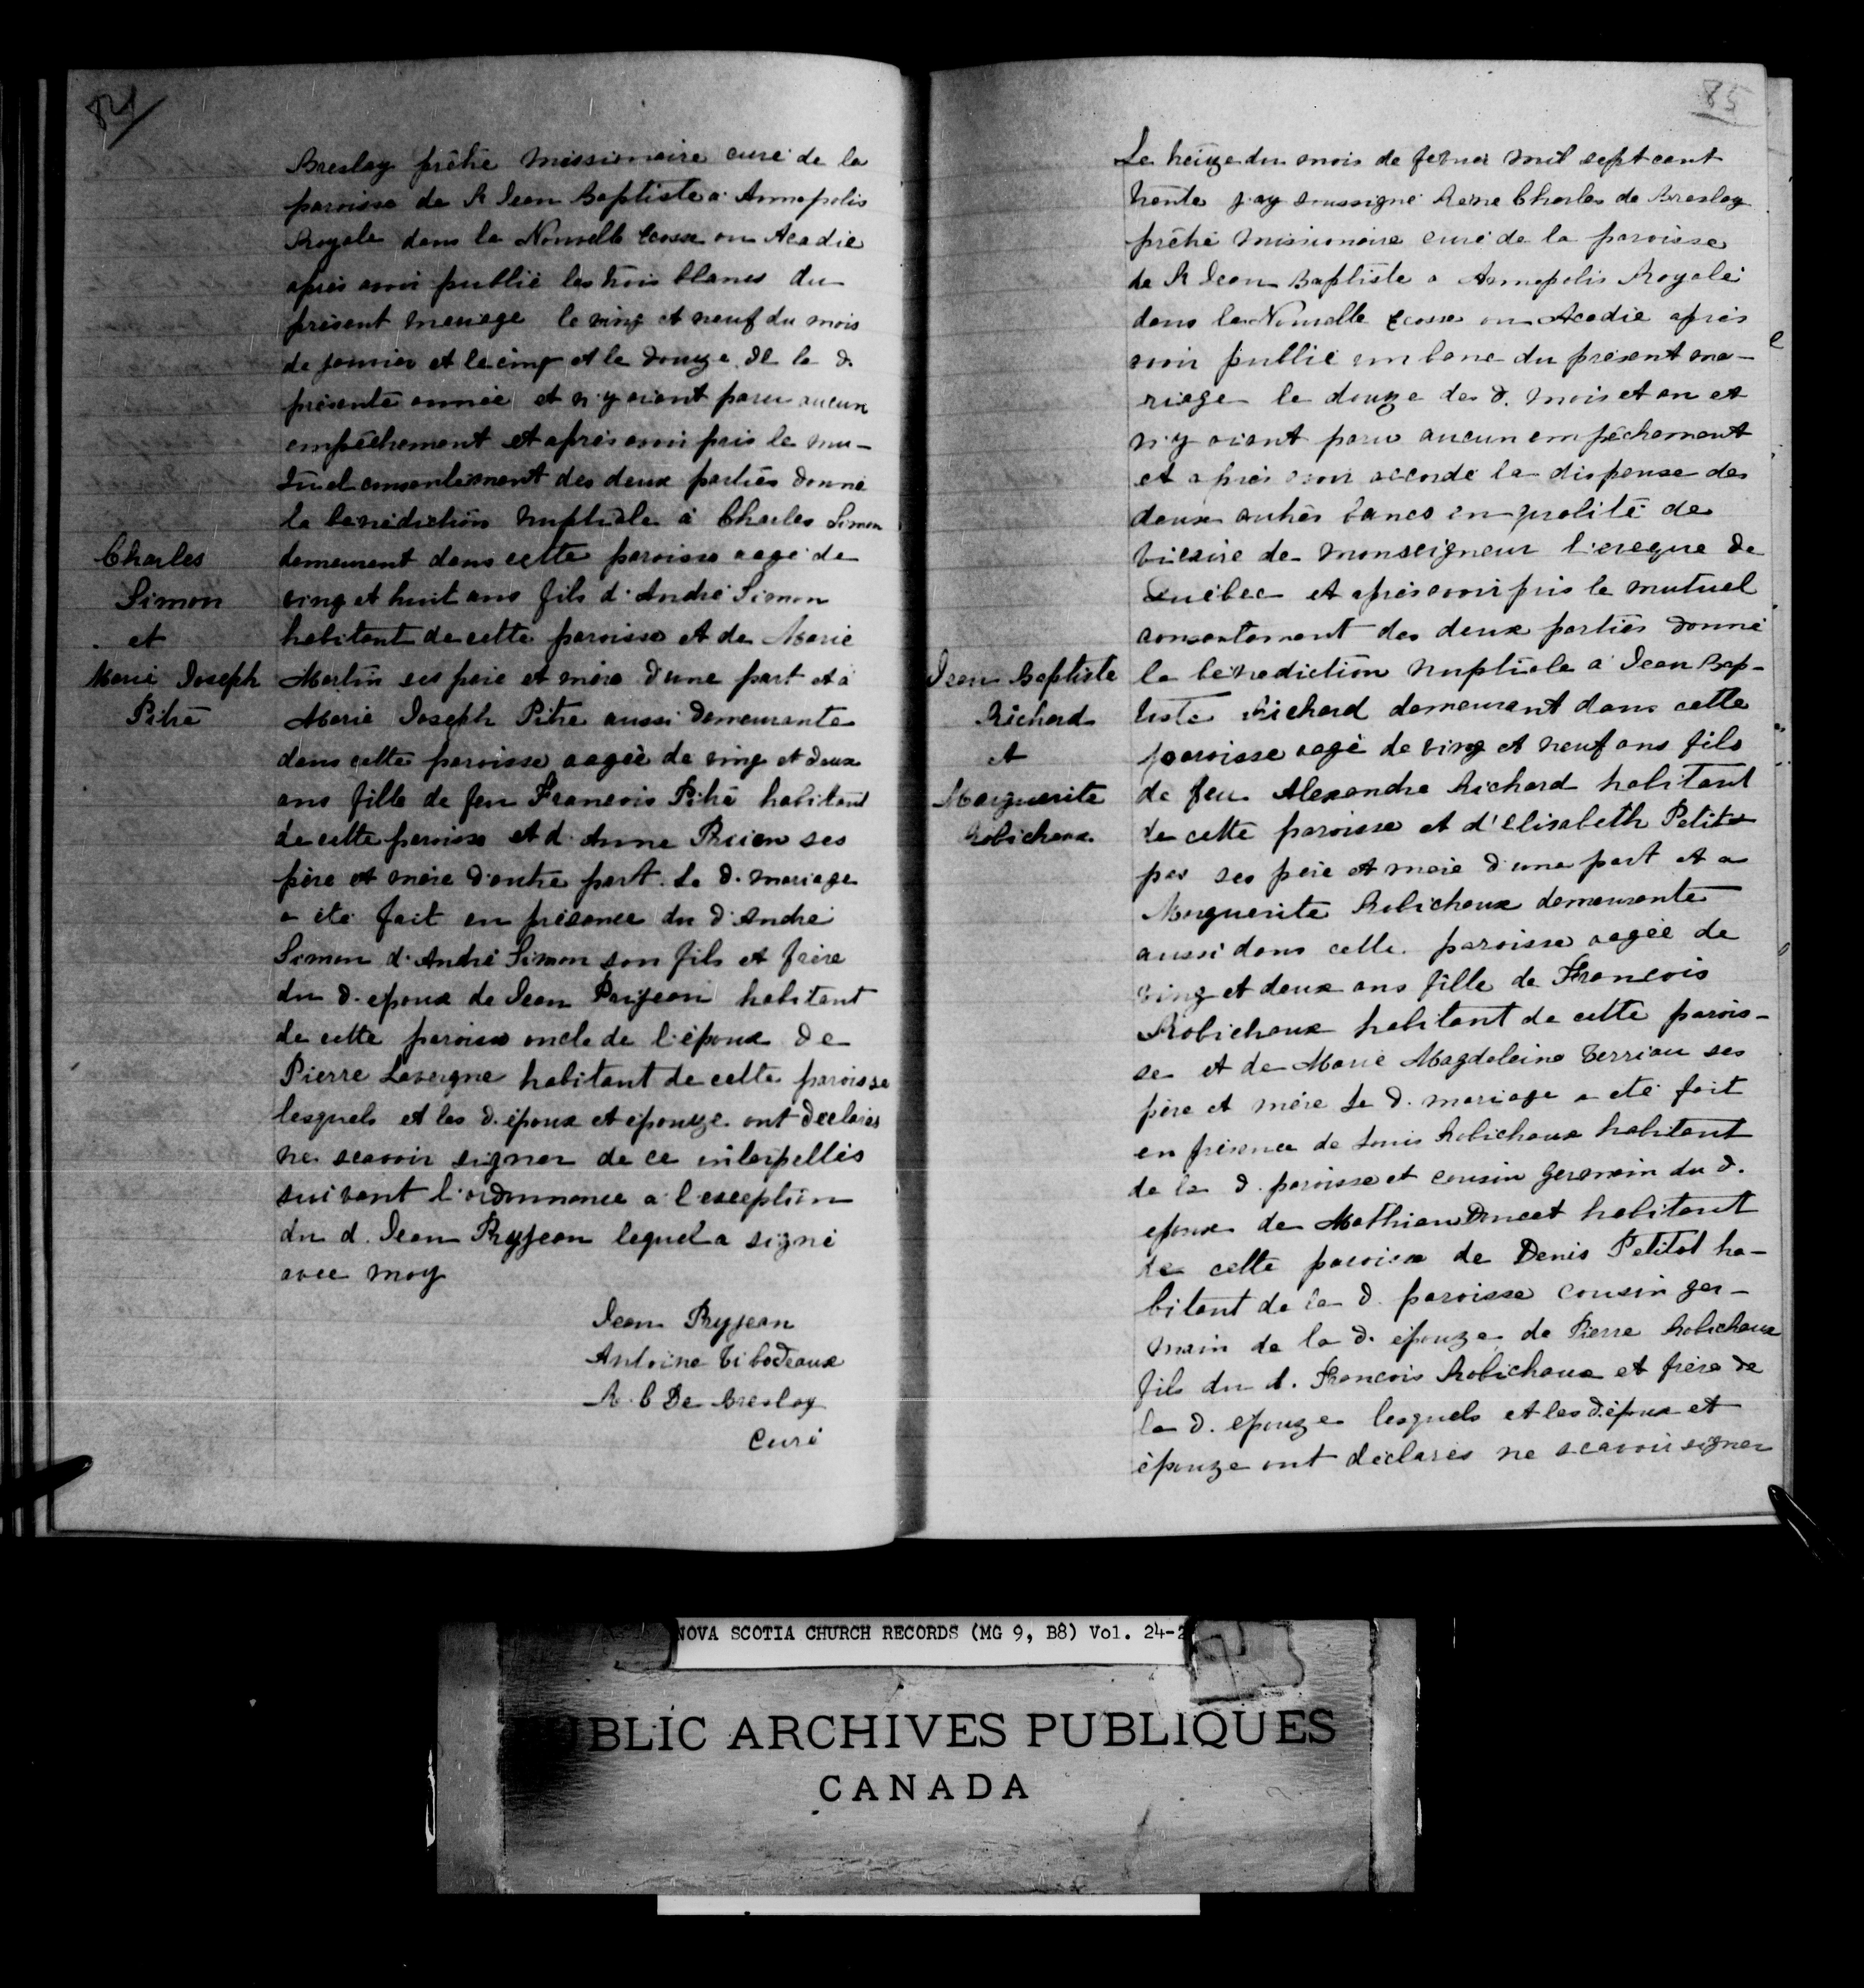 84
Breslay prêtre missionnaire curé de la
paroisse de St Jean Baptiste a Annapolis
Royale dans la Nouvelle Ecosse ou Acadie
après avoir publié les trois blancs du
présent menage le vingt et neuf du mois
de janvier et le cinq et le douze de la d.
présente année et n'y aiant paru aucun
empêchement et après avoir pris le mu-
tuel consentement des deux parties donné
la bénédiction nuptiale à Charles Simon
Charles
Simon
et
Marie Joseph
Pitre
demeurant dans cette paroisse aagé de
vingt et huit ans fils d'André Simon
habitant de cette paroisse et de Marie
Martin ses père et mère d'une part et à
Marie Joseph Pitre aussi demeurante
dans cette paroisse aagée de vingt et deux
ans fille de feu Francois Pitre habitant
de cette paroisse et d'Anne Preien ses
père et mère d'autre part. Le d. mariage
a été fait en présence du d. André
Simon d'André Simon son fils et frère
du d. epoux de Jean Prijean habitant
de cette paroisse oncle de l'époux de
Pierre Lavergne habitant de cette paroisse
lesquels et les d. époux et épouze ont déclarés
ne scavoir signer de ce interpellés
suivant l'ordonnance a l'exception
du d. Jean Pryjean lequel a signé
avec moy
Jean Pryjean
Antoine Tibodeaux
R. C De Breslay
Curé
85
Le treize du mois de fevrier mil sept cent
trente j'ay soussigné Rene Charles de Breslay
prêtre missionaire curé de la paroisse
de St Jean Baptiste a Annapolis Royale
dans la Nouvelle Ecosse ou Acadie après
avoir publié un banc du présent ma-
riage le douze des d. mois et an et
n'y aiant paru aucun empêchement
et après avoir accordé la dispense des
deux autres bancs en qualité de
vicaire de monseigneur l'eveque de
Québec et après avoir pris le mutuel
consentement des deux parties donné
Jean Baptiste
Richard
et
Marguerite
Robichaux
la bénédiction nuptiale a Jean Bap-
tiste Richard demeurant dans cette
paroisse aagé de vingt et neuf ans fils
de feu Alexandre Richard habitant
de cette paroisse et d'Elisabeth Petit
pas ses père et mère d'une part et a
Marguerite Robichaux demeurante
aussi dans cette paroisse aagée de
vingt et deux ans fille de Francois
Robichaux habitant de cette parois-
se et de Marie Magdeleine Terriau ses
père et mère Le d. mariage a été fait
en présence de Louis Robichaux habitant
de la d. paroisse et cousin germain du d.
epoux de Mathieu Doucet habitant
de cette paroisse de Denis Petitot ha-
bitant de la d. paroisse cousin ger-
main de la d. épouze de Pierre Robichaux
fils du d. Francois Robichaux et frère de
la d. epouze lesquels et les d. époux et
épouze ont déclarés ne scavoir signer
NOVA SCOTIA CHURCH RECORDS (MG 9, B8) Vol. 24-2
PUBLIC ARCHIVES PUBLIQUES
CANADA